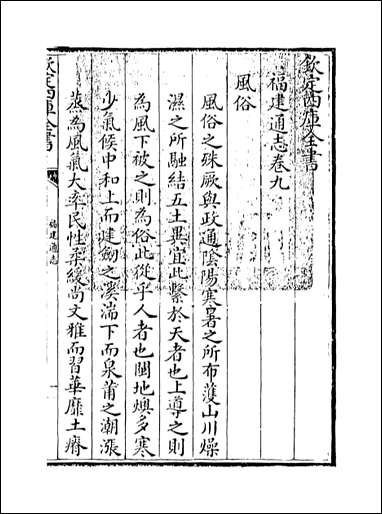 欽定四庫全書
福建通志卷九
風俗
風俗之殊厥與政通陰陽寒暑之所布濩山川燥
濕之所融結五土異宜此繫於天者也上導之則
為風下被之則為俗此從乎人者也閩地燠多寒
少氣候中和上而建劒之溪湍下而泉莆之潮漲
蒸為風氣大率民性柔緩尚文雅而習華靡土瘠
欽定四庫全書
福建通志
一